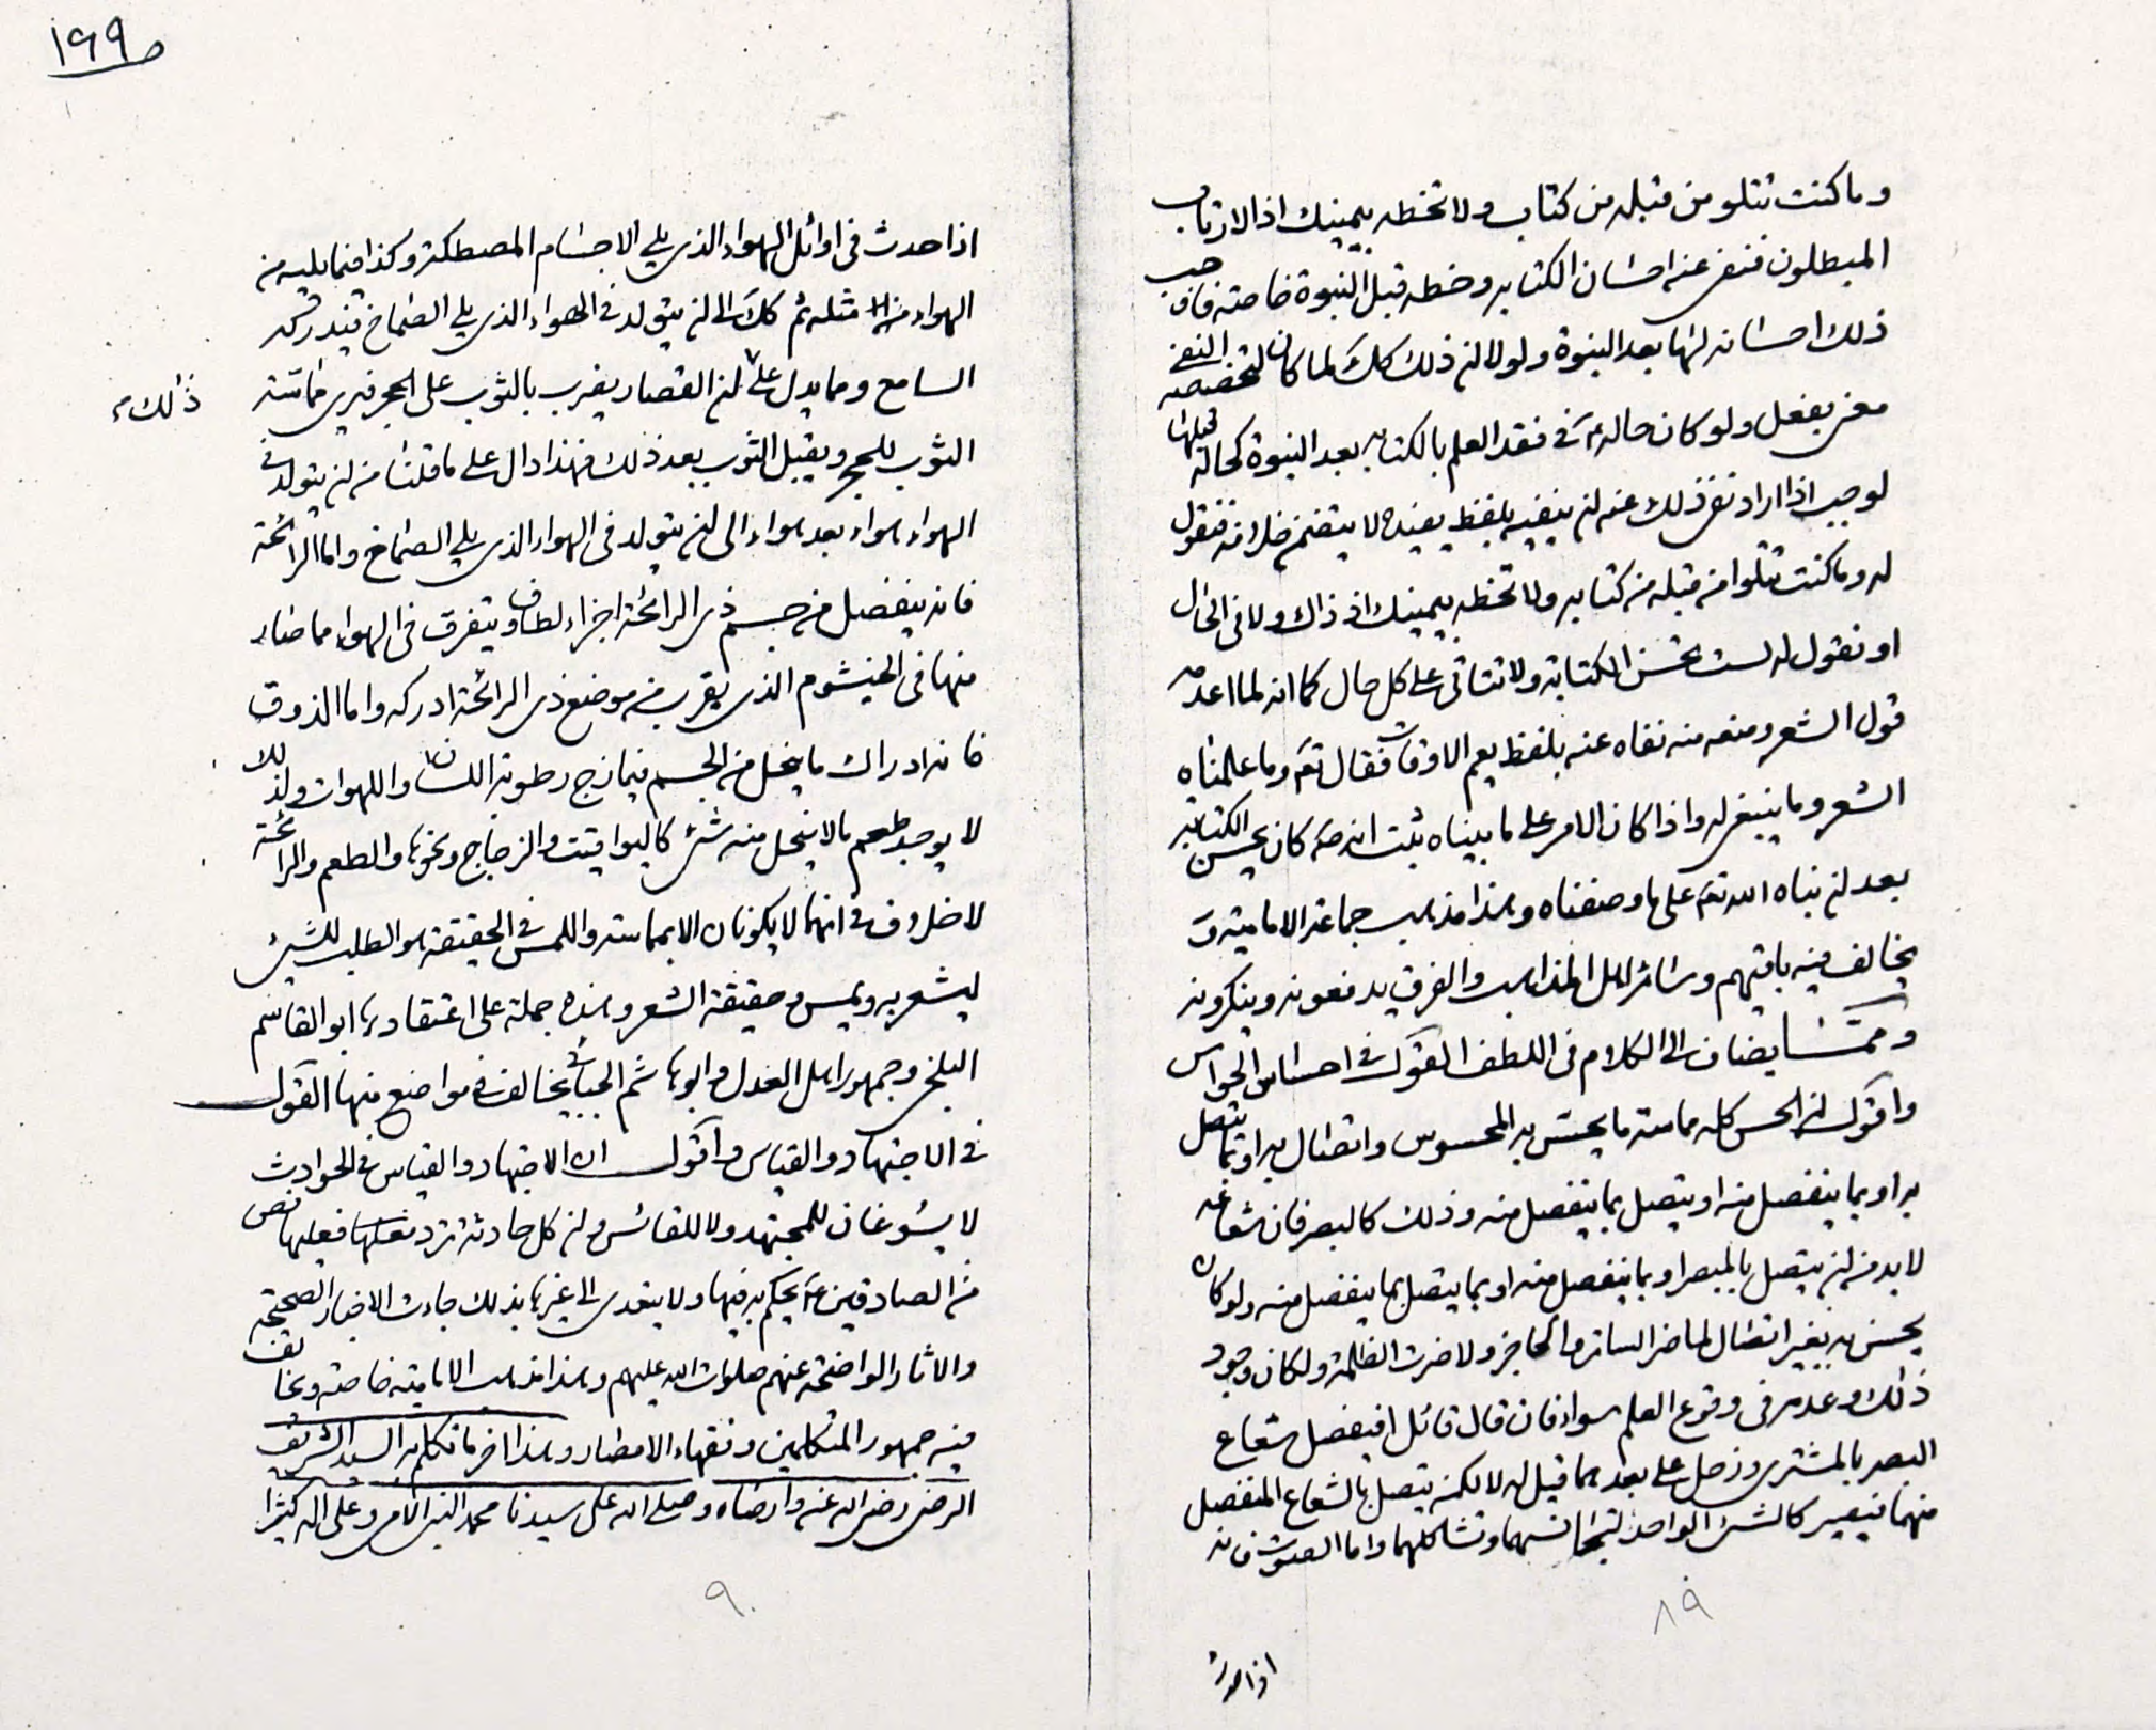 وما كنت تتلو من قبله من كتاب ولا تخطه بيمينك اذا لارتاب
المبطلون فنفى عنه احسان الكتابة وخطه قبل النبوة خاصة فاوجب
ذلك احسانه لها بعد النبوة ولولا ان ذلك كك لما كان لتخصيصه النفى
معنى يعقل ولو كان حاله ع فى فقد العلم بالكتابة بعد النبوة كحاله قبلها
لوجب اذا اراد نفى ذلك عنه ان ينفيه بلفظ يفيده لا يتضمن خلافه فنقول
له وما كنت تتلوا من قبله من كتاب ولا تخطه بيمينك اذ ذاك ولا فى الحال
او نقول له لست تحسن الكتابة ولا تتاتى على كل حال كما انه لما اعدمه
قول الشعر ومنعه منه نفاه عنه بلفظ يعم الاوقات فقال تع وما علمناه
الشعر وما ينبغى له واذا كان الامر على ما بيناه ثبت انه ص كان يحسن الكتابة
بعد ان نباه الله تع على ما وصفناه وهذا مذهب جماعة الامامية و
يخالف فيه باقيهم وسائر اهل المذاهب والفرق يدفعونه وينكرونه
وممّا يضاف الى الكلام فى اللطف القول فى احساس الحواس
واقول ان الحس كله مماسة ما يحسّ به المحسوس واتصال به او بما يتصل
به او بما ينفصل منه او يتصل بما ينفصل منه وذلك كالبصر فان شعاعه
لا بد من ان يتصل بالمبصر او بما ينفصل منه او بما يتصل بما ينفصل منه ولو كان
يحس به بغير اتصال لما ضر الساتر والحاجز ولا ضرت الظلمة ولكان وجود
ذلك وعدمه فى وقوع العلم سواء فان قال قائل افيفصل شعاع
البصر بالمشترى وزحل على بعدهما قيل له لا لكنه يتصل بالشعاع المنفصل
منهما فيصير كالشئ الواحد لتجانسهما وتشاكلهما واما الصوت فانه
٨٩
اذا حدث
١٩٩
اذا حدث فى اوائل الهواء الذى يلى الاجسام المصطكة وكذا فيما يليه من
الهواء مثله ثم كك الى ان يتولد فى الهواء الذى يلى الصماخ فيدركه
السامع ومما يدل على ان القصار يضرب بالثوب على الحجر فيرى مماسة
ذلك
الثوب للحجر ويقبل الثوب بعد ذلك فهذا دال على ما قلناه من ان يتولد فى
الهواء هواء بعد هواء الى ان يتولد فى الهواء الذى يلى الصماخ واما الرائحة
فانه ينفصل من جسم ذى الرائحة اجزاء لطاف ويتفرق فى الهواء مما صار
منها فى الخيشوم الذى يقرب من موضع ذى الرائحة ادركه واما الذوق
فانه ادراك ما ينحل من الجسم فيمازج رطوبة اللسان واللهوات ولذلك
لا يوجد طعم ما لا ينحل منه شئ كاليواقيت والزجاج ونحوها والطعم والرائحة
لا خلاف فى انهما لا يكونان الا بمماسة واللمس فى الحقيقة هو الطلب للشئ
ليشعر به ويحس وحقيقة الشعر وهذه جملة على اعتقادها ابو القاسم
البلخى وجمهور اهل العدل وابو هاشم الجبائى يخالف فى مواضع منها القول
فى الاجتهاد والقياس واقول ان الاجتهاد والقياس فى الحوادث
لا يسوغان للمجتهد ولا للقائس وان كل حادثة ترد فعليها نص
من الصادقين ع يحكم به فيها ولا يتعدى الى غيرها بذلك جاءت الاخبار الصحيحة
والاثار الواضحة عنهم صلوات الله عليهم وهذا مذهب الامامية خاصة وتخالف
فيه جمهور المتكلمين وفقهاء الامصار وهذا اخر ما تكلم به السيد الشريف
الرضى رضى الله عنه وارضاه وصلى الله على سيدنا محمد النبى الامى وعلى اله كثيرا
٩٠